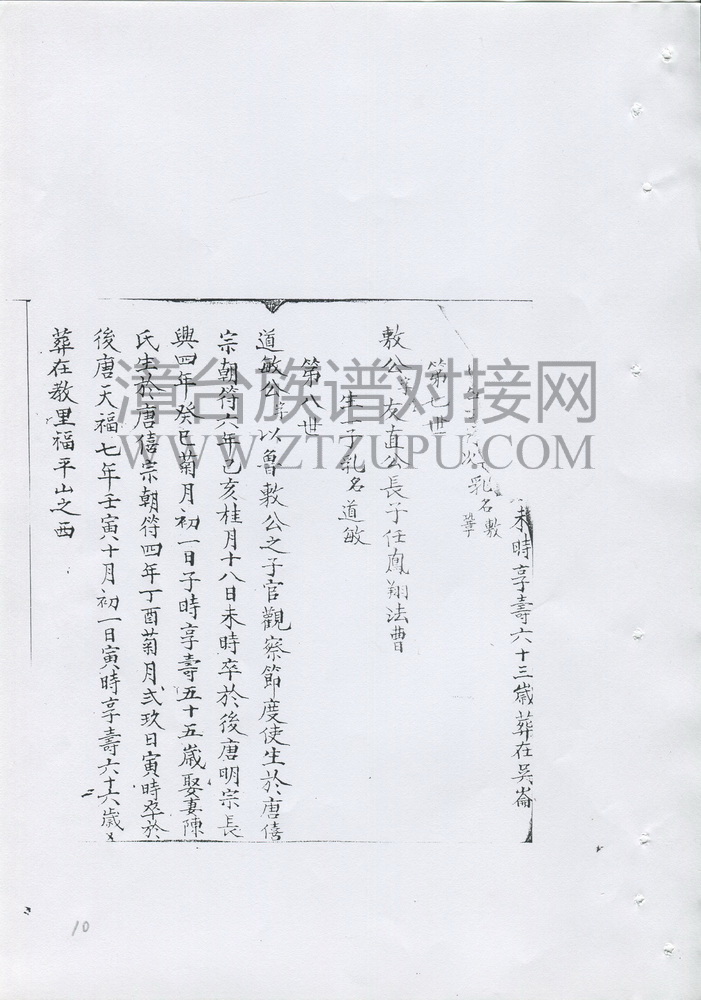 未時享壽六十三歲葬在吳崙
乳名敷
肇
第七世
敷公字友直公長子任鳳翔法曹
生一子乳名道敏
第八世
道敏公字以魯敷公之子官觀察節度使生於唐僖
宗朝符六年己亥桂月十八日未時卒於後唐明宗長
興四年癸巳菊月初一日子時享壽五十五歲娶妻陳
氏生於唐僖宗朝符四年丁酉菊月弍玖日寅時卒於
後唐天福七年壬寅十月初一日寅時享壽六十六歲
葬在教里福平山之西
漳台族谱对接网
WWW.ZTZUPU.COM
10